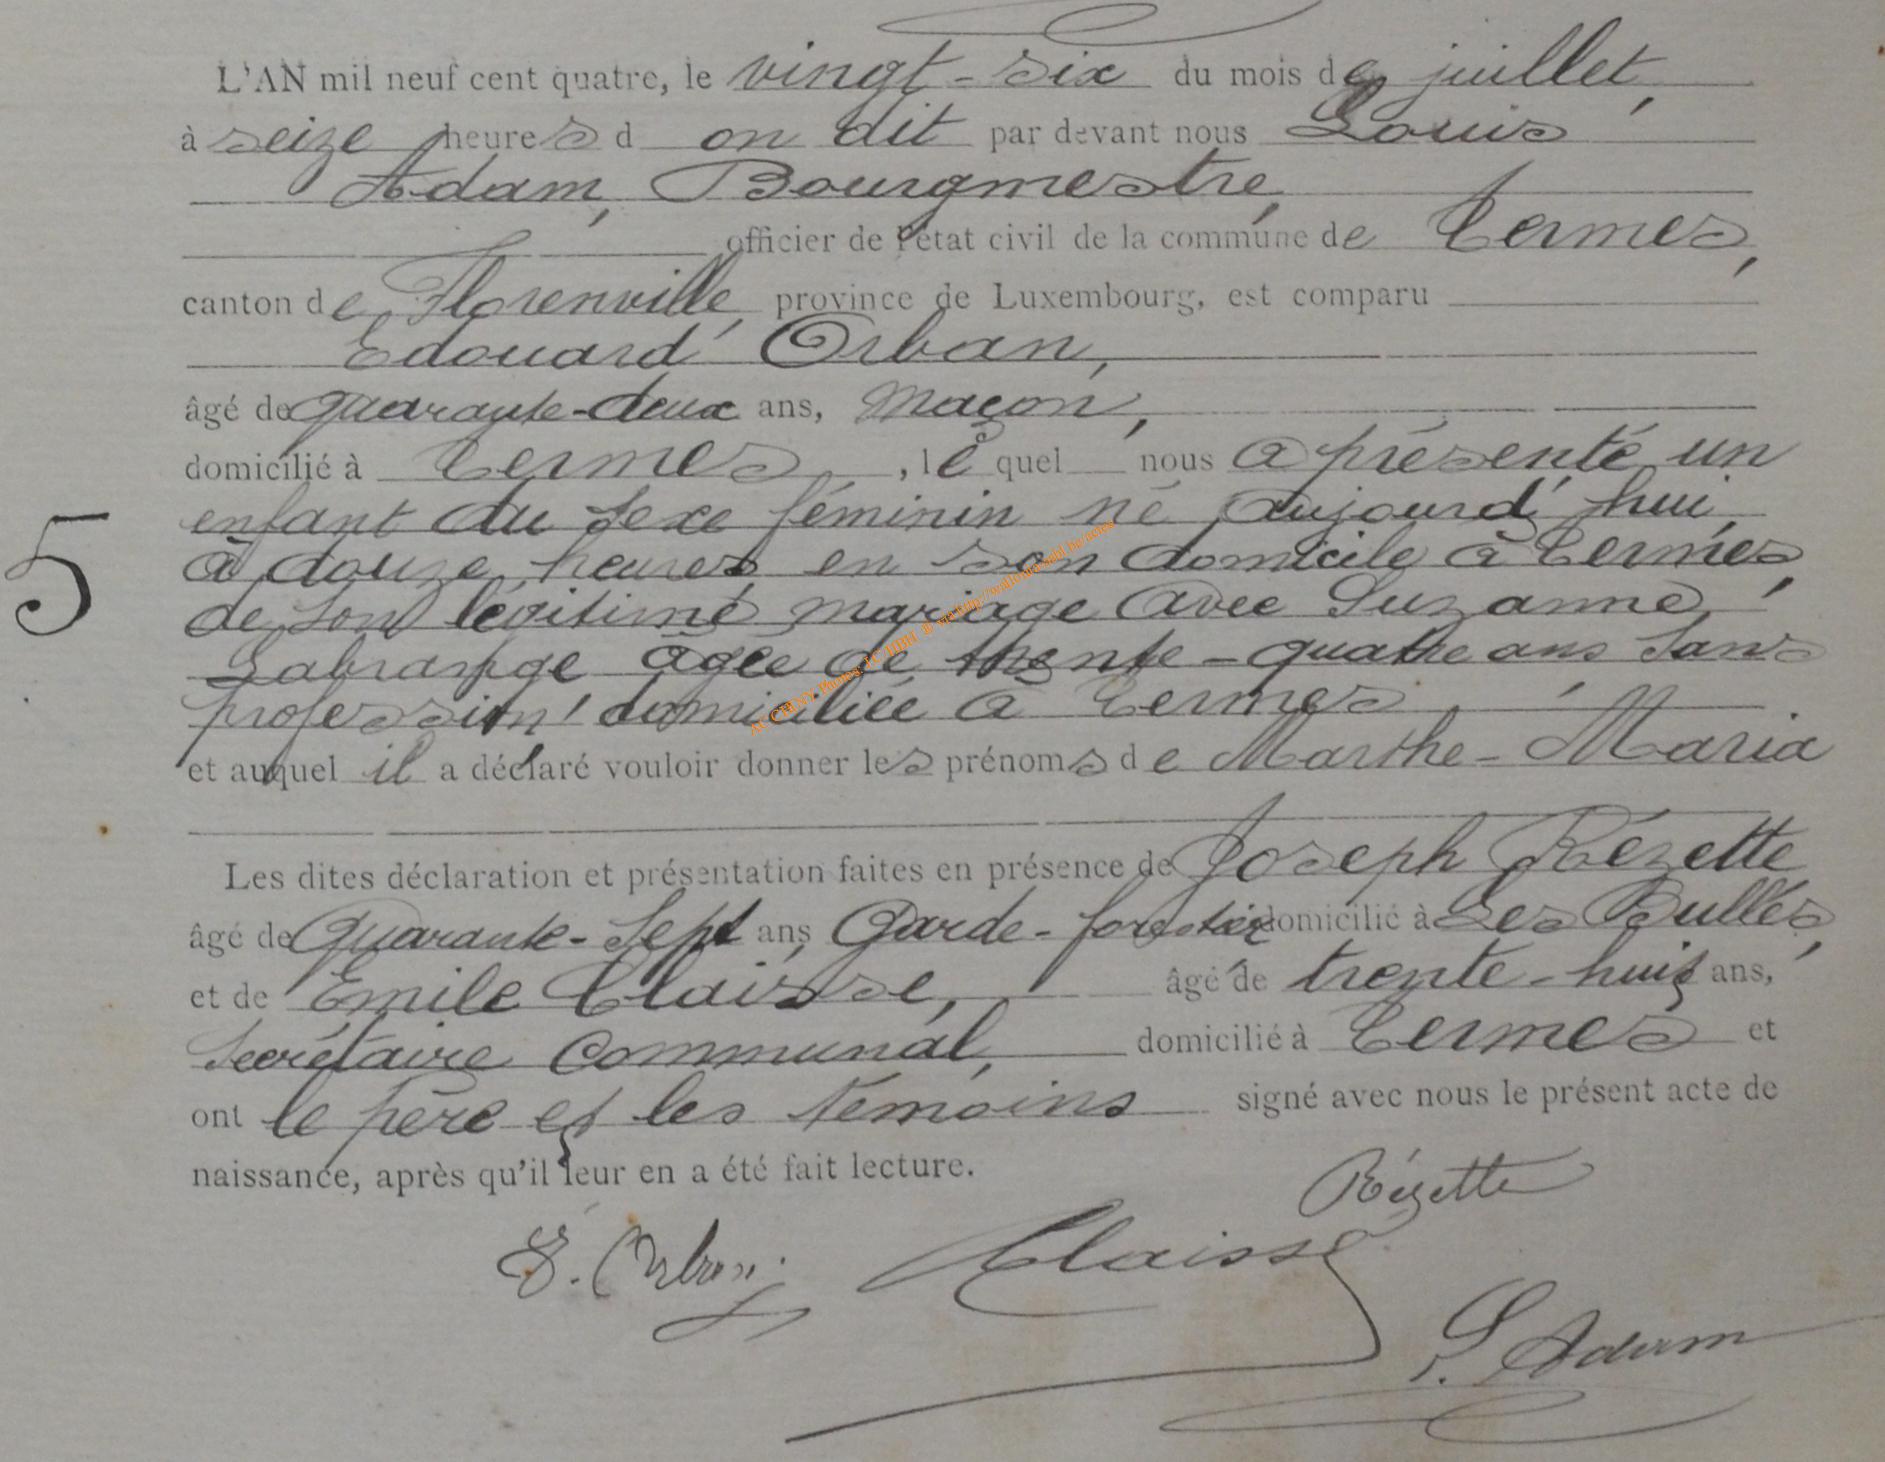 L'AN mil neuf cent quatre, le vingt-six du mois de juillet,
à seize heures d on dit par devant nous Louis
Adam, Bourgmestre,
officier de l'état civil de la commune de Termes,
canton de Florenville, province de Luxembourg, est comparu
Edouard Orban,
âgé de quarante-deux ans, Maçon,
domicilié à Termes, lequel nous a présenté un
enfant du sexe féminin né aujourd'hui,
à douze heures, en son domicile à Termes,
de son légitime mariage avec Suzanne
5
Labrange âgée de trente-quatre ans sans
profession, domiciliée à Termes
et auquel il a déclaré vouloir donner les prénoms de Marthe-Maria
Les dites déclaration et présentation faites en présence de Joseph Rézette,
âgé de Quarante-sept ans, Garde-forestier domicilié à Les Bulles,
et de Emile Claisse, âgé de trente-huit ans,
Secrétaire communal, domicilié à Termes et
ont le père et les témoins signé avec nous le présent acte de
naissance, après qu'il leur en a été fait lecture.
Rézette
E. Orban
Claisse
L. Adam